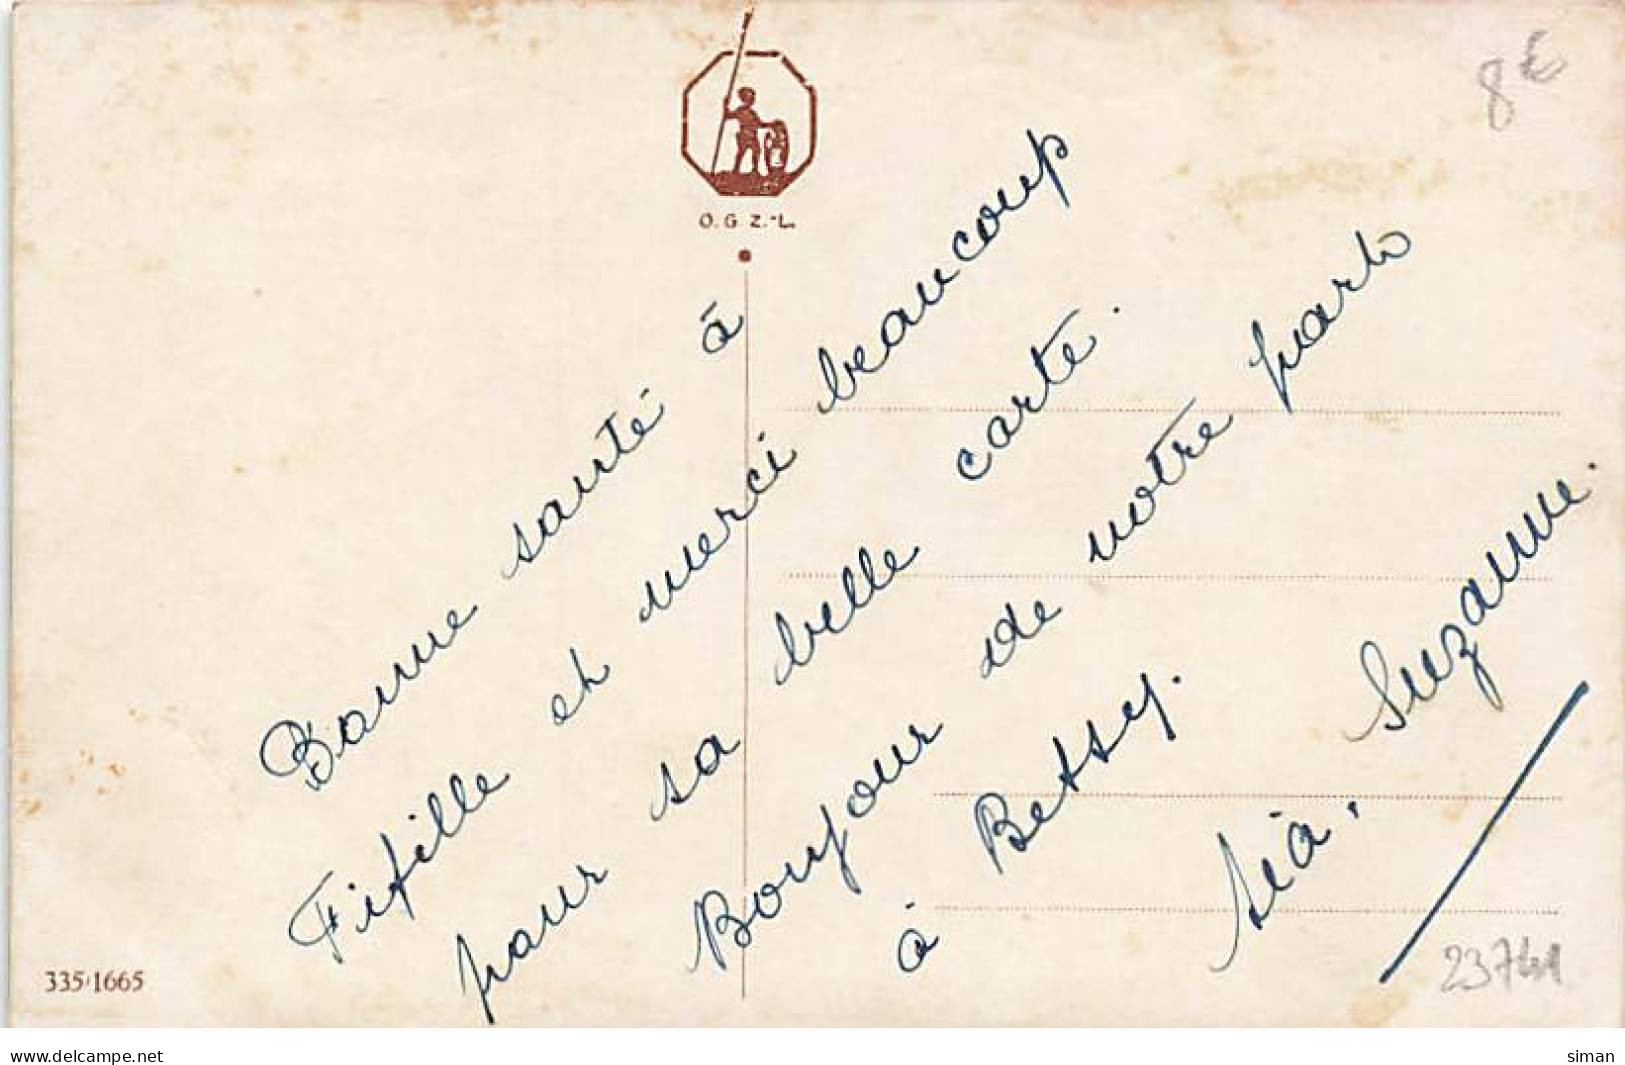 8€
O.G.Z.-L.
Bonne santé à
Fifille et merci beaucoup
pour sa belle carte.
Bonjour de notre part
à Betssy.
Suzanne.
335/1665
23741
www.delcampe.net
siman